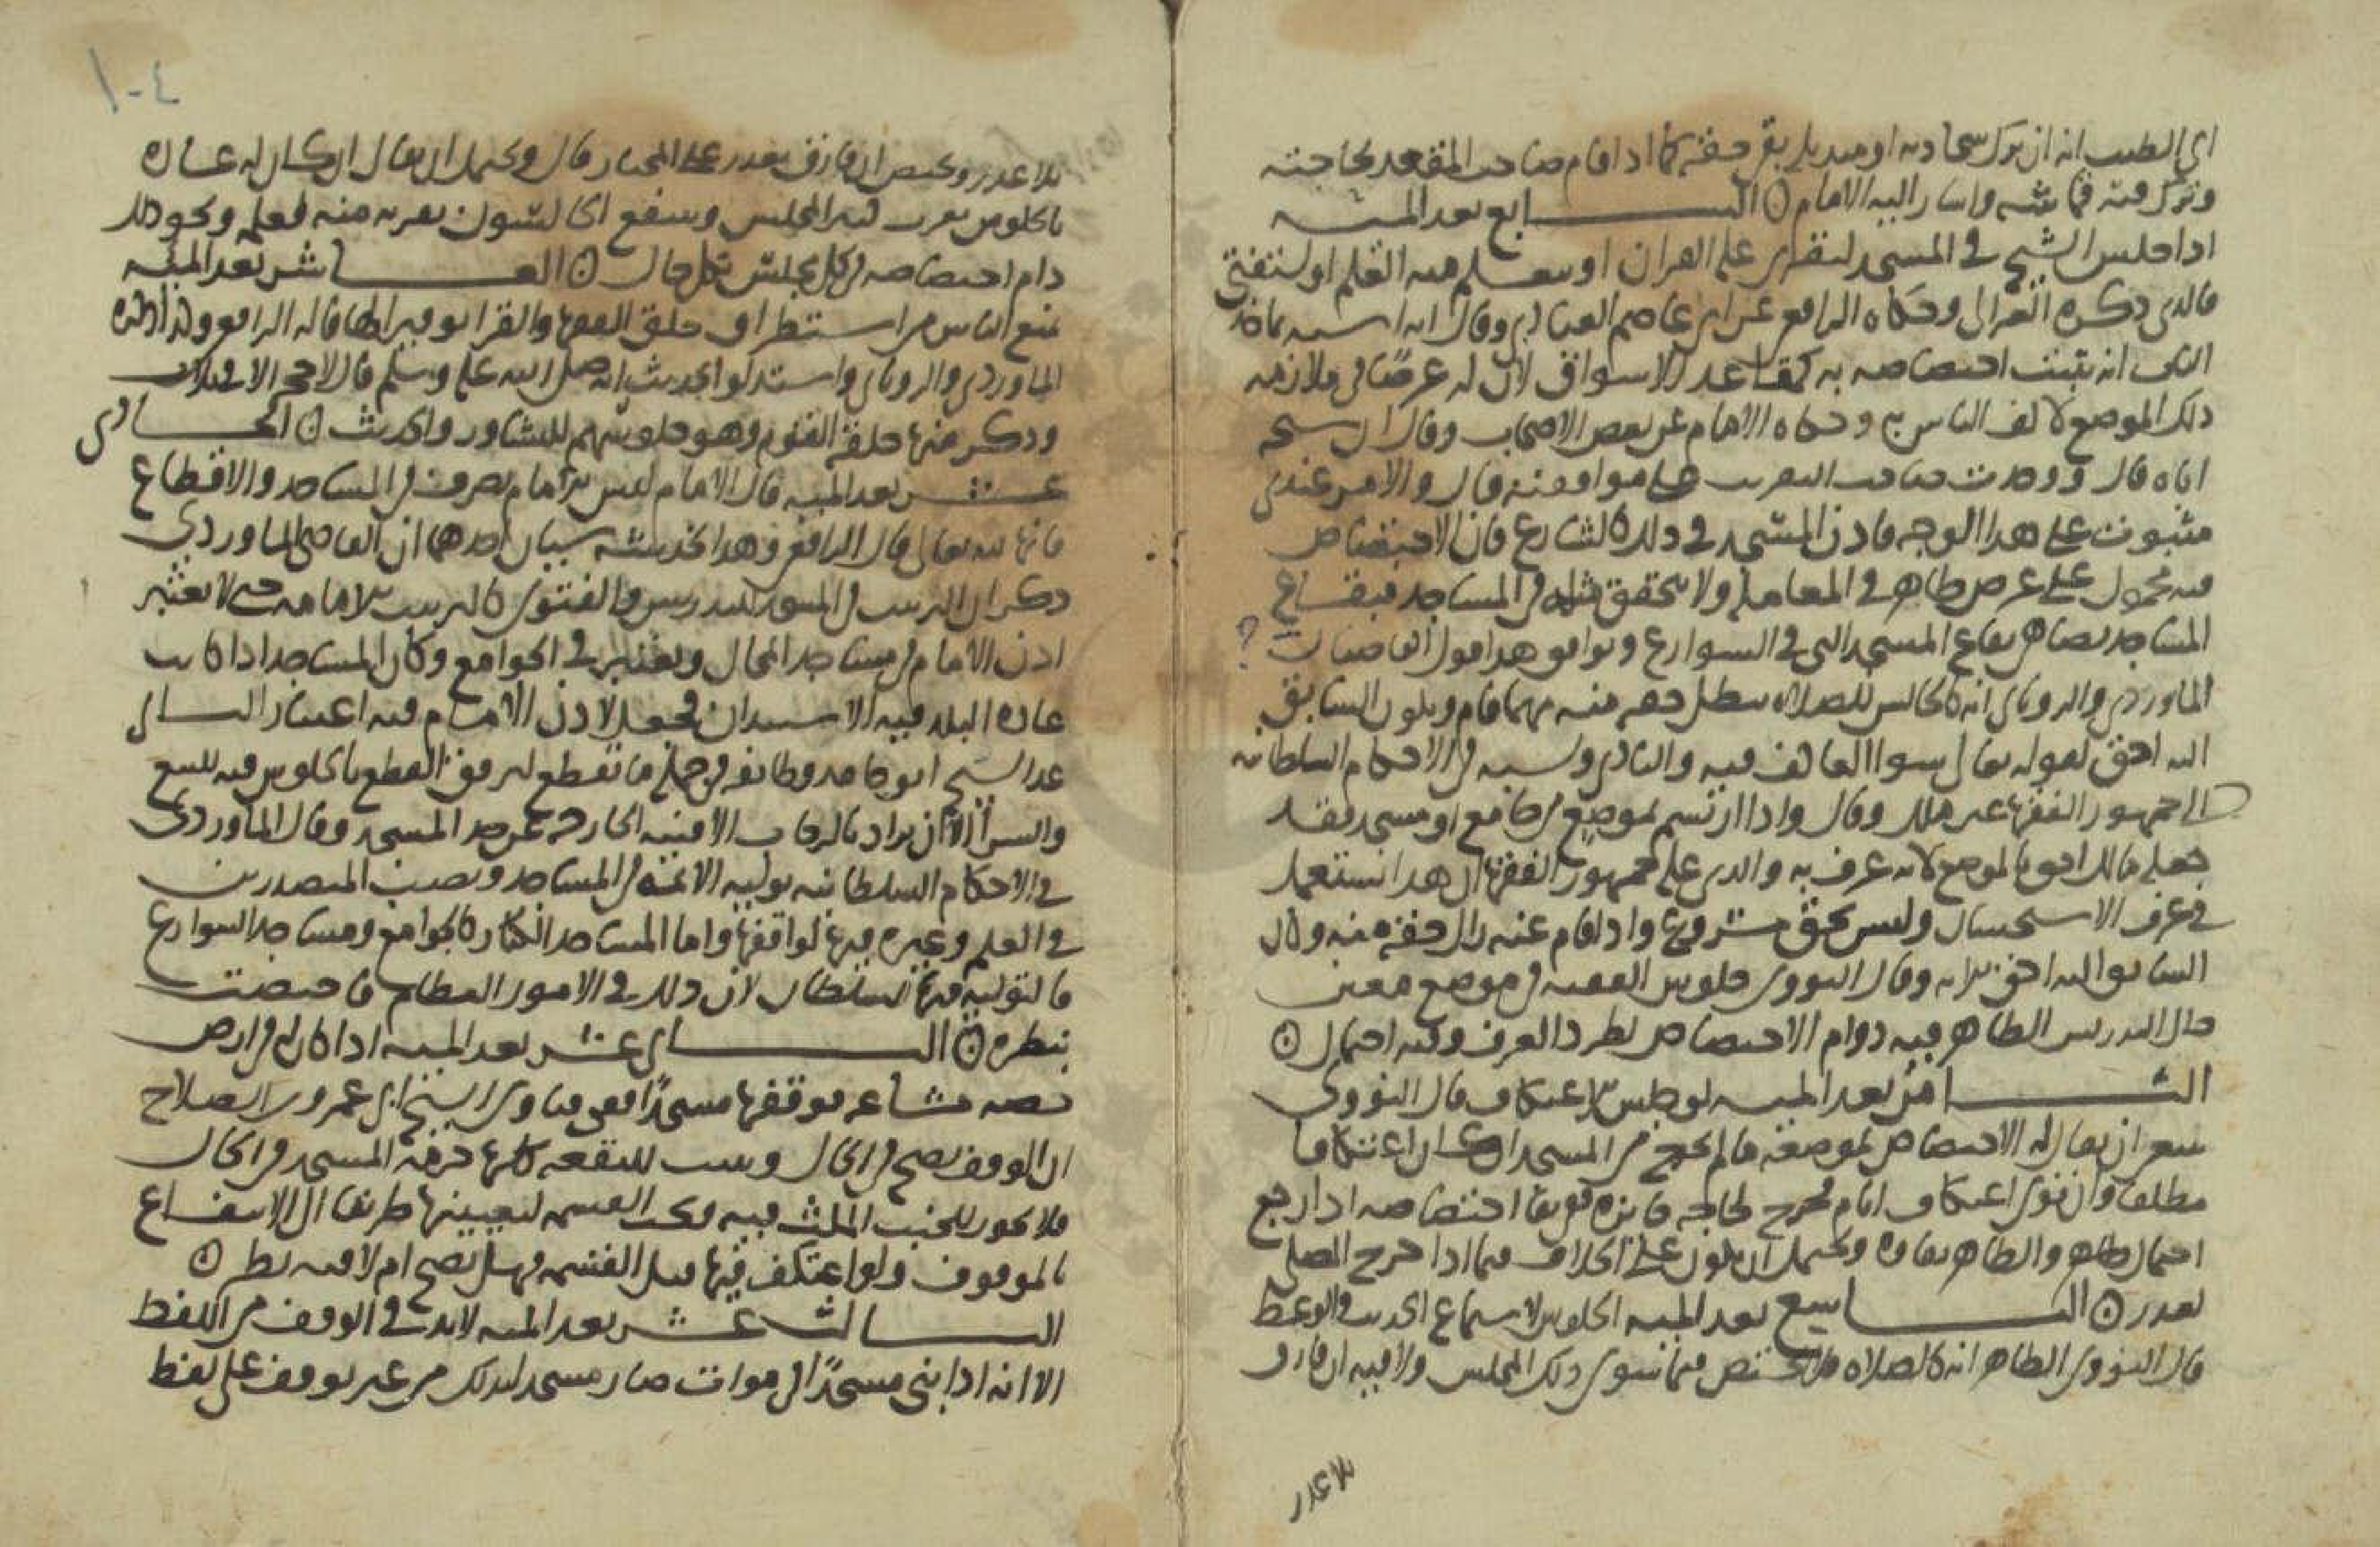 ابي الطيب انه ان ترك سجادته او منديله بقي حقه كما اذا قام صاحب المقعد لحاجته
وترك فيه قماشه واشار اليه الامام ۞ السابع بعد المئه
اذا جلس الشيخ في المسجد ليقرا عليه القران او يتعلم منه العلم او يستفتى
فالذي ذكره الغزالي وحكاه الرافعي عن ابي عاصم العبادي وقال انه اشبه بماخذ
الباب انه يثبت اختصاصه به كمقاعد الاسواق لان له غرضا في ملازمه
ذلك الموضع لا لف الناس به وحكاه الامام عن بعض الاصحاب وقال ان شيخه
اباه قال وجدت صاحب التقريب على موافقته قال والامر عندي
مثبوت على هذا الوجه فاذن المسجد في ذلك كالشارع فان الاختصاص
فيه محمول على غرض ظاهر في المعامله ولا يتحقق مثله في المساجد فبقاع
المساجد تضاهي بقاع المسجد التي في الشوارع ويوافق هذا قول القاضيان ؟
الماوردي والروياني انه كالجالس للصلاه يبطل حقه منه مهما قام ويكون السابق
اليه احق لقوله تعالى سوا العاكف فيه والبادي ونسبه في الاحكام السلطانيه
الى جمهور الفقها غير ملك وقال واذا ارتسم بموضع من جامع او مسجد فقد
جعله مالك احق بالموضع لانه عرف به والذي عليه جمهور الفقها ان هذا يستعمل
في عرف الاستحسان وليس بحق مشروع واذا قام عنه زال حقه منه وكان
السابق اليه احق به وقال النووي جلوس الفقيه في موضع معين
حال التدريس الظاهر فيه دوام الاختصاص لطرد العرف وفيه احتمال ۞
الثامن بعد المئه لو جلس للاعتكاف قال النووي
ينبغي ان يقال له الاختصاص بموضعه ما لم يخرج من المسجد ان كان اعتكافا
مطلقا وان نوى اعتكاف ايام فخرج لحاجه جائزه ففي بقا اختصاصه اذا رجع
احتمال ظاهر والظاهر بقاوه ويحتمل ان يكون على الخلاف فيما اذا خرج المصلي
لعذر ۞ التاسع بعد المئه الجلوس لاستماع الحديث والوعظ
قال النووي الظاهر انه كالصلاه فلا يختص فيما سوى ذلك المجلس ولا فيه ان فارق
بلا عذر
١٠٤
بلا عذر ويختص ان فارق بعذر على المختار قال ويحتمل ان يقال ان كان له عاده
بالجلوس بقرب كبير المجلس وينتفع الحاضرون بقربه منه لعلمه ونحو ذلك
دام اختصاصه في كل مجلس بكل حال ۞ العاشر بعد المئه
يمنع الناس من استطراق حلق الفقها والقرا توقيرا لها قاله الرافعي وكذا ذكره
الماوردي والروياني واستدلوا بحديث انه صلى الله عليه وسلم قال لا حمى الا في ثلاث
وذكر منها حلقه القوم وهو جلوسهم للتشاور والحديث ۞ الحادي
عشر بعد المئه قال الامام ليس للامام تصرف في المساجد والاقطاع
فانها لله تعالى قال الرافعي وهذا يخدشه شيئان احدهما ان القاضي الماوردي
ذكر ان الترتيب في المسجد للتدريس والفتوى كالترتيب للامامه حتى لا يعتبر
اذن الامام في مساجد المحال ويعتبر في الجوامع وكبار المساجد اذا كانت
عاده البلد فيه الاستيذان فجعل لاذن الامام فيه اعتبار الثاني
عد الشيخ ابو حامد وطائفه في جمله ما يقطع للرفق القطع بالجلوس فيه للبيع
والشرا الا ان يراد بالرحاب الافنيه الخارجه عن حد المسجد وقال الماوردي
في الاحكام السلطانيه توليه الائمه في المساجد ونصب المتصدرين
في العلم وغيره فيها لواقفها واما المساجد الكبار كالجوامع ومساجد الشوارع
فالتوليه فيها للسلطان لان ذلك في الامور العظام فاختصت
بنظره ۞ الثاني عشر بعد المئه اذا كان له في ارض
حصه مشاعه فوقفها مسجدا ففي فتاوى الشيخ ابي عمرو بن الصلاح
ان الوقف يصح في الحال ويثبت للبقعه كلها حرمه المسجد في الحال
فلا يجوز للجنب المكث فيه وتجب القسمه لتعيينها طريقا الى الانتفاع
بالموقوف ولو اعتكف فيها قبل القسمه فهل يصح ام لا فيه نظر ۞
الثالث عشر بعد المئه لا بد في الوقف من اللفظ
الا انه اذا بنى مسجدا في موات صار مسجدا بذلك من غير توقف على لفظ